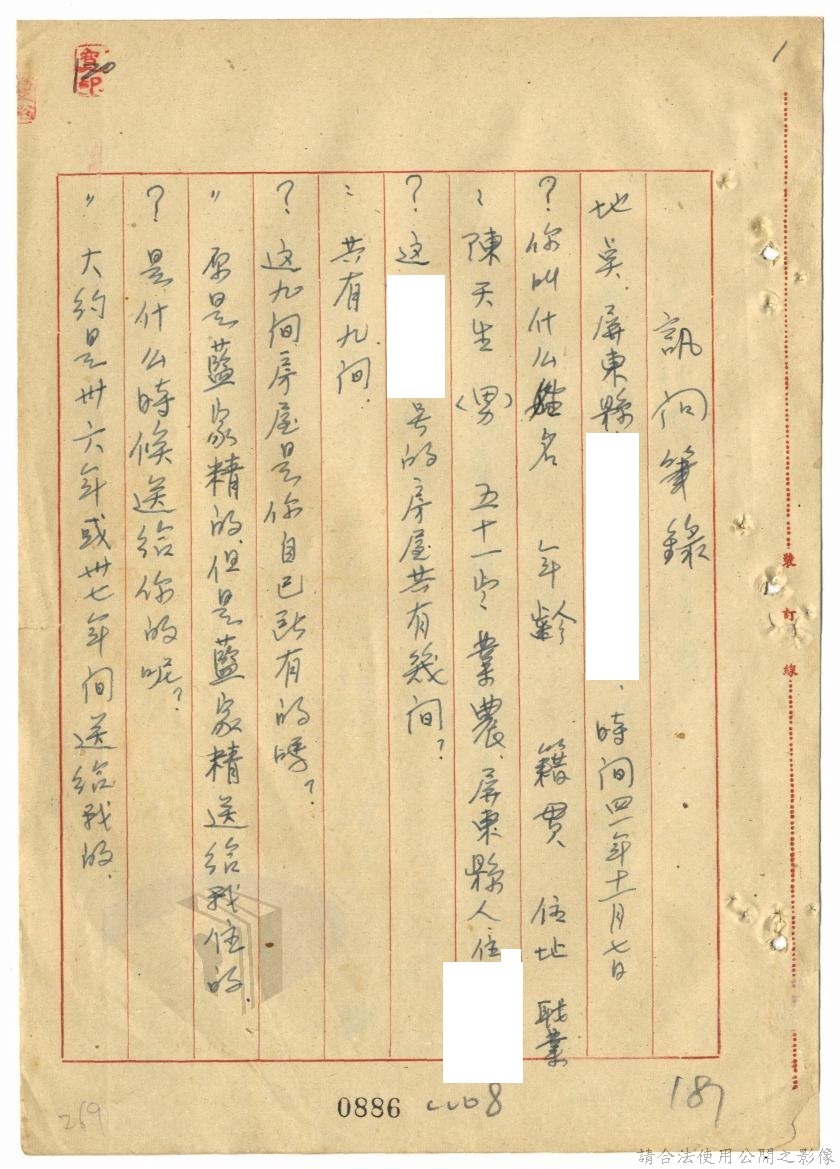 1
訊问筆錄
地吴.屏東縣、時间四一年十二月七日
?你叫什么姓名 年齡 籍貫 住地 职業
〻陳天生(男) 五十一岁 業農.屏東縣人住
?这号的房屋共有幾间?
〻共有九间.
?这九间房屋是你自已所有的嗎?
〃原是藍家精的.但是藍家精送给我住的.
?是什么時候送给你的呢?
〃大約是卅六年或卅七年间送给我的.
裝訂線
0886
187
269
請合法使用公開之影像